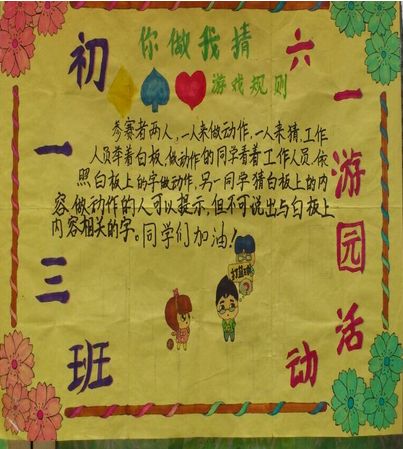 你做我猜
游戏规则
初一三班
六一游园活动
参赛者两人,一人来做动作,一人来猜.工作
人员举着白板,做动作的同学看着工作人员,依
照白板上的字做动作,另一同学猜白板上的内
容.做动作的人可以提示,但不可说出与白板上
内容相关的字。同学们加油!
打篮球